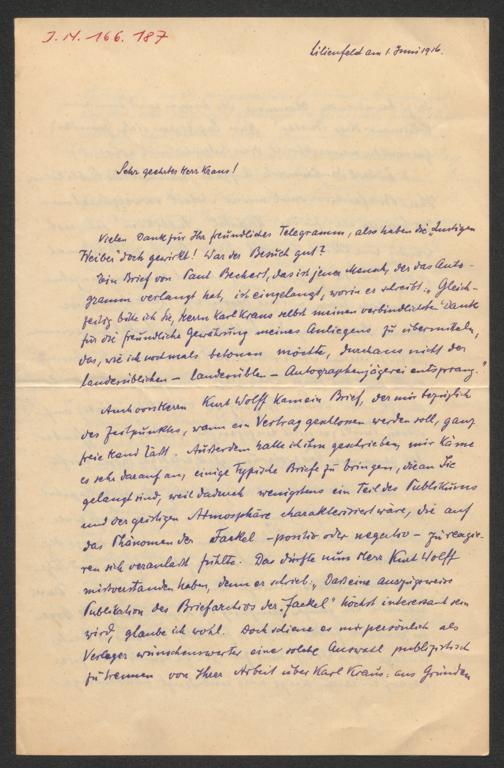 J.N. 166.187
Lilienfeld am 1. Juni 1916.
Sehr geehrter Herr Kraus!
Vielen Dank für Ihr freundliches Telegramm, also haben die „Lustigen
Weiber" doch gewirkt! War der Besuch gut?
Ein Brief von Paul Bechert, das ist jener Mensch, der das Auto-
gramm verlangt hat, ist eingelangt, worin er schreibt: „Gleich-
zeitig bitte ich Sie, Herrn Karl Kraus selbst meinen verbindlichsten Dank
für die freundliche Gewährung meines Anliegens zu übermitteln,
das, wie ich nochmals betonen möchte, durchaus nicht der
landesüblichen – landesüblen – Autographenjägerei entsprang."
Auch von Herrn Kurt Wolff kam ein Brief, der mir bezüglich
des Zeitpunktes, wann ein Vertrag geschlossen werden soll, ganz
freie Hand läßt. Außerdem hatte ich ihm geschrieben, mir käme
es sehr darauf an, einige typische Briefe zu bringen, die an Sie
gelangt sind, weil dadurch wenigstens ein Teil des Publikums
und der geistigen Atmosphäre charakterisiert wäre, die auf
das Phänomen der Fackel – positiv oder negativ – zu reagie-
ren sich veranlaßt fühlte. Das dürfte nun Herr Kurt Wolff
mißverstanden haben, denn er schrieb: „Daß eine auszugsweise
Publikation des Briefarchivs der „Fackel" höchst interessant sein
wird, glaube ich wohl. Doch schiene es mir persönlich als
Verleger wünschenswerter eine solche Auswahl publizistisch
zu trennen von Ihrer Arbeit über Karl Kraus: aus Gründen